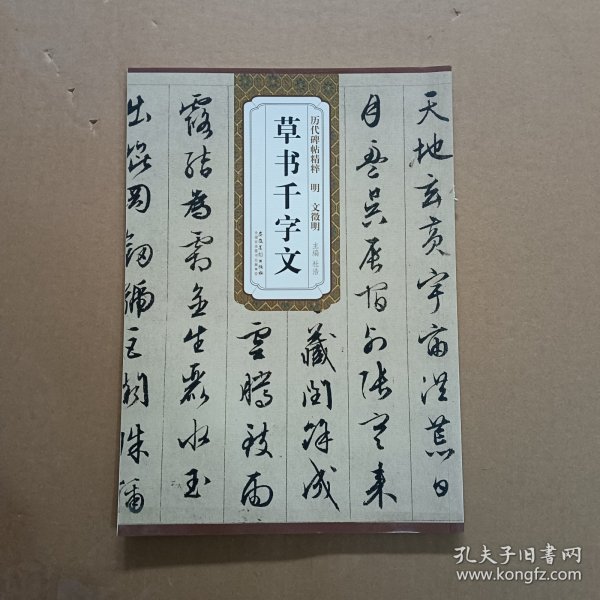 历代碑帖精粹 明 文徵明
主编 杜浩
草书千字文
安徽美术出版社
天地玄黄宇宙洪荒日
月盈昃辰宿列张寒来
藏闰余成
云腾致雨
露结为霜金生丽水玉
出昆冈剑号巨阙珠称
孔夫子旧书网
www.kongfz.com